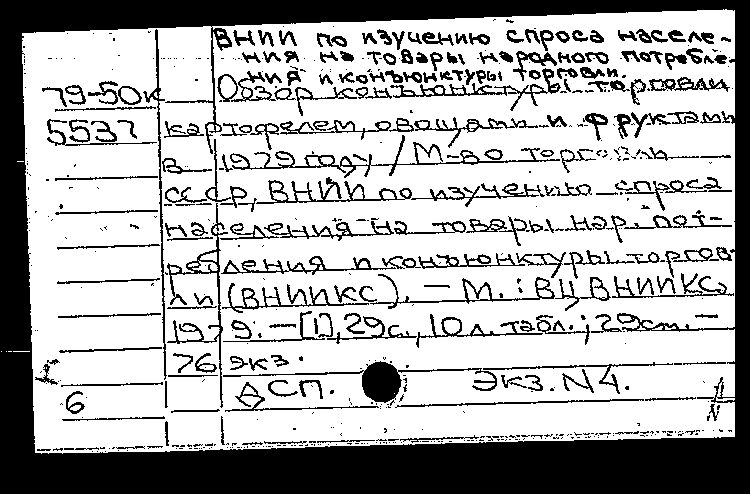 ВНИИ по изучению спроса населе-
ния на товары народного потребле-
ния и конъюнктуры торговли.
79-50к Обзор конъюнктуры торговли
5537 картофелем, овощами и фруктами
в 1979 году / М-во торговли
СССР, ВНИИ по изучению спроса
населения на товары нар. пот-
ребления и конъюнктуры торгов-
ли (ВНИИКС). — М. : ВЦ ВНИИКС,
1979. — [1], 29 с., 10 л. табл.; 29 см. —
76 экз.
СП. Экз. N 4.
6